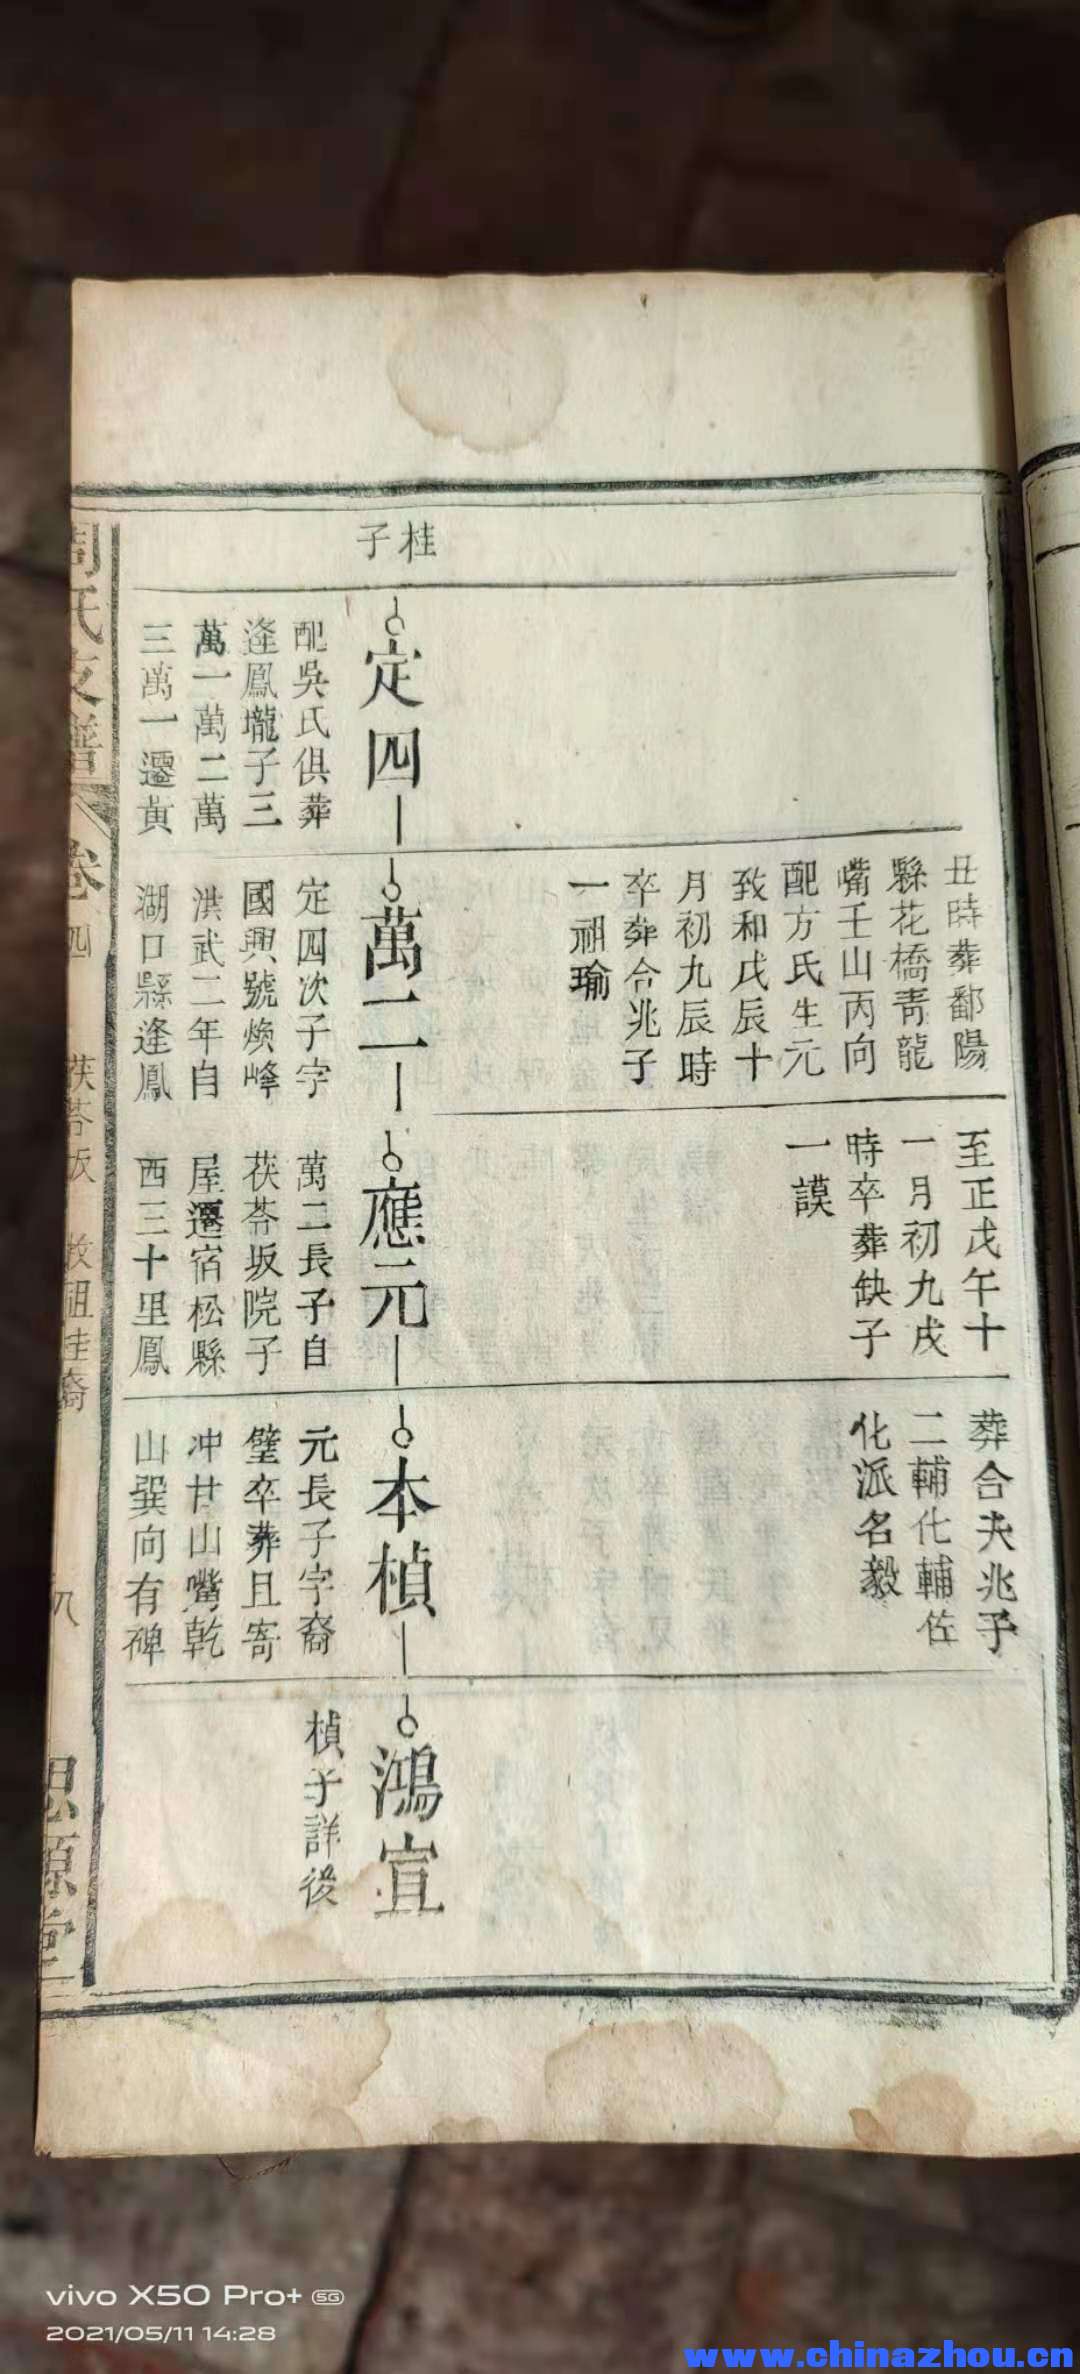 桂
子
定四
配吳氏俱葬
逢鳳壠子三
萬一萬二萬
三萬一遷黃
丑時葬鄱陽
縣花橋青龍
嘴壬山丙向
配方氏生元
致和戊辰十
月初九辰時
卒葬合兆子
一祖瑜
萬二
定四次子字
國興號煥峰
洪武二年自
湖口縣逢鳳
至正戊午十
一月初九戌
時卒葬缺子
一謨
應元
萬二長子自
茯苓坂院子
屋遷宿松縣
西三十里鳳
葬合夫兆子
二輔化輔佐
化派名毅
本楨
元長子字裔
璧卒葬且寄
冲廿山嘴乾
山巽向有碑
鴻宣
楨子詳後
周氏支譜
卷四
茯苓坂 牧祖桂裔
八
思源堂
vivo X50 Pro+ 5G
2021/05/11 14:28
www.chinazhou.cn